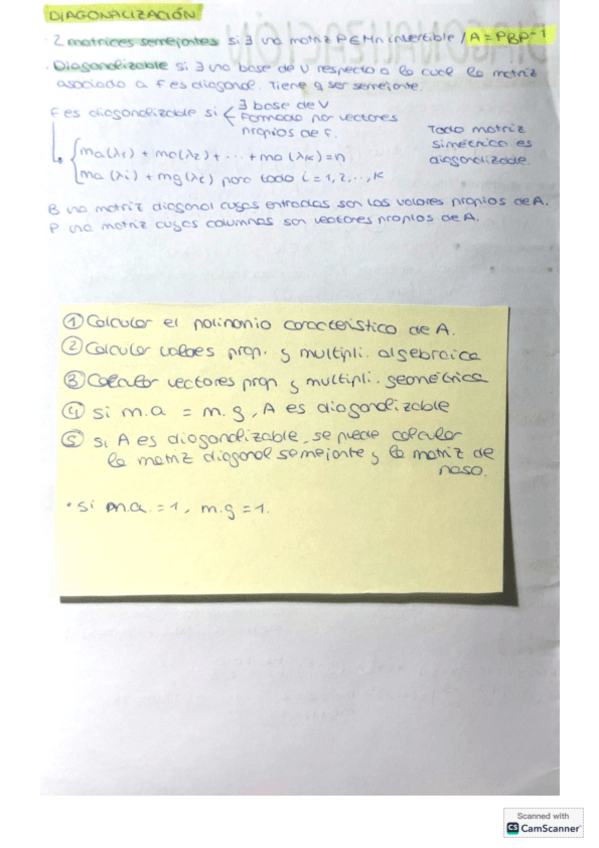 DIAGONALIZACIÓN
· 2 matrices semejantes si ∃ una matriz P∈Mn invertible / A = PBP⁻¹
· Diagonalizable si ∃ una base de V respecto a la cual la matriz
asociada a F es diagonal. Tiene q ser semejante.
F es diagonalizable si < ∃ base de V
formada por vectores
propios de F.
Toda matriz
simétrica es
diagonalizable.
ma(λ1) + ma(λ2) + ... + ma(λk) = n
ma(λi) + mg(λi) para todo i = 1, 2, ..., k
B una matriz diagonal cuyas entradas son los valores propios de A.
P una matriz cuyas columnas son vectores propios de A.
① Calcular el polinomio característico de A.
② Calcular valores prop. y multipli. algebraica
③ Calcular vectores prop y multipli. geométrica
④ si m.a = m.g, A es diagonalizable
⑤ si A es diagonalizable, se puede calcular
la matriz diagonal semejante y la matriz de
paso.
· si m.a. = 1, m.g = 1.
Scanned with
CS CamScanner